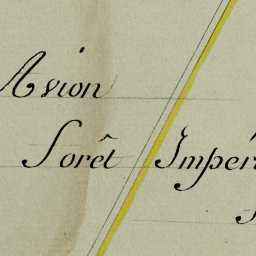 Avion
Forêt Impér